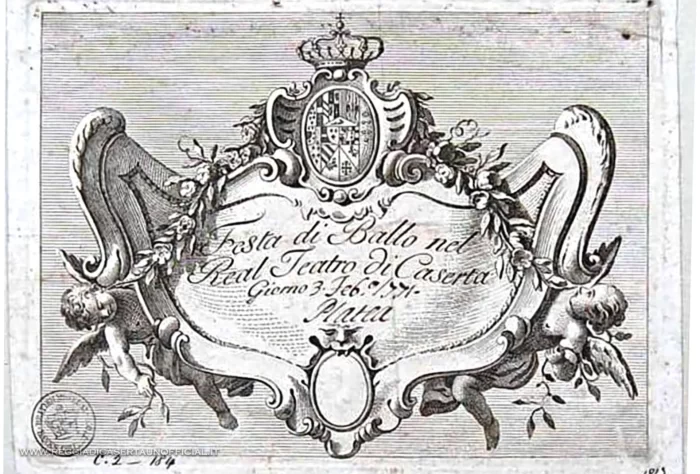 Festa di Ballo nel
Real Teatro di Caserta
Giorno 3. Feb.º 1771.
Platea
WWW.REGGIADICASERTAUNOFFICIAL.IT
C. 2 — 184